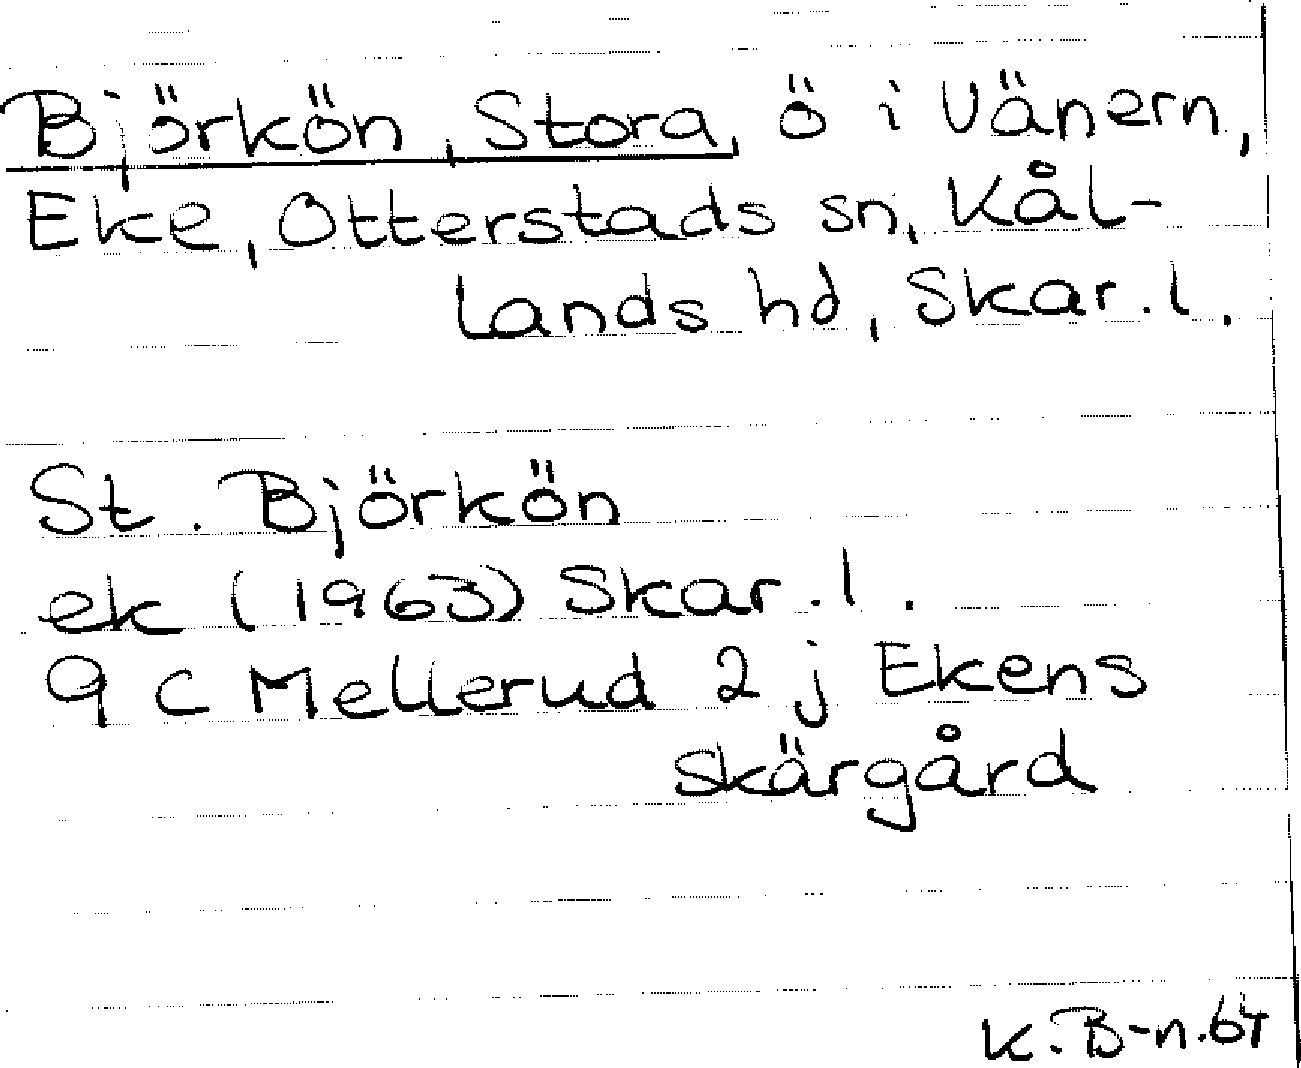 Björkön, Stora, ö i Vänern,
Eke, Otterstads sn, Kål-
lands hd, Skar. l.
St. Björkön
ek (1963) Skar. l.
9 C Mellerud 2 j Ekens
skärgård
K. B-n. 64